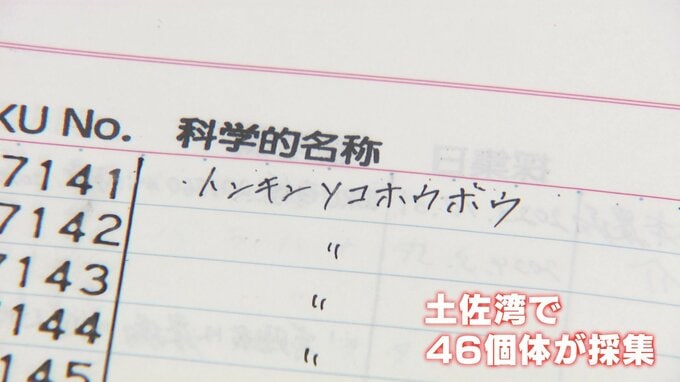 KU No. 科学的名称
7141 トンキンソコホウボウ
7142 〃
7143 〃
7144 〃
145
土佐湾で
46個体が採集